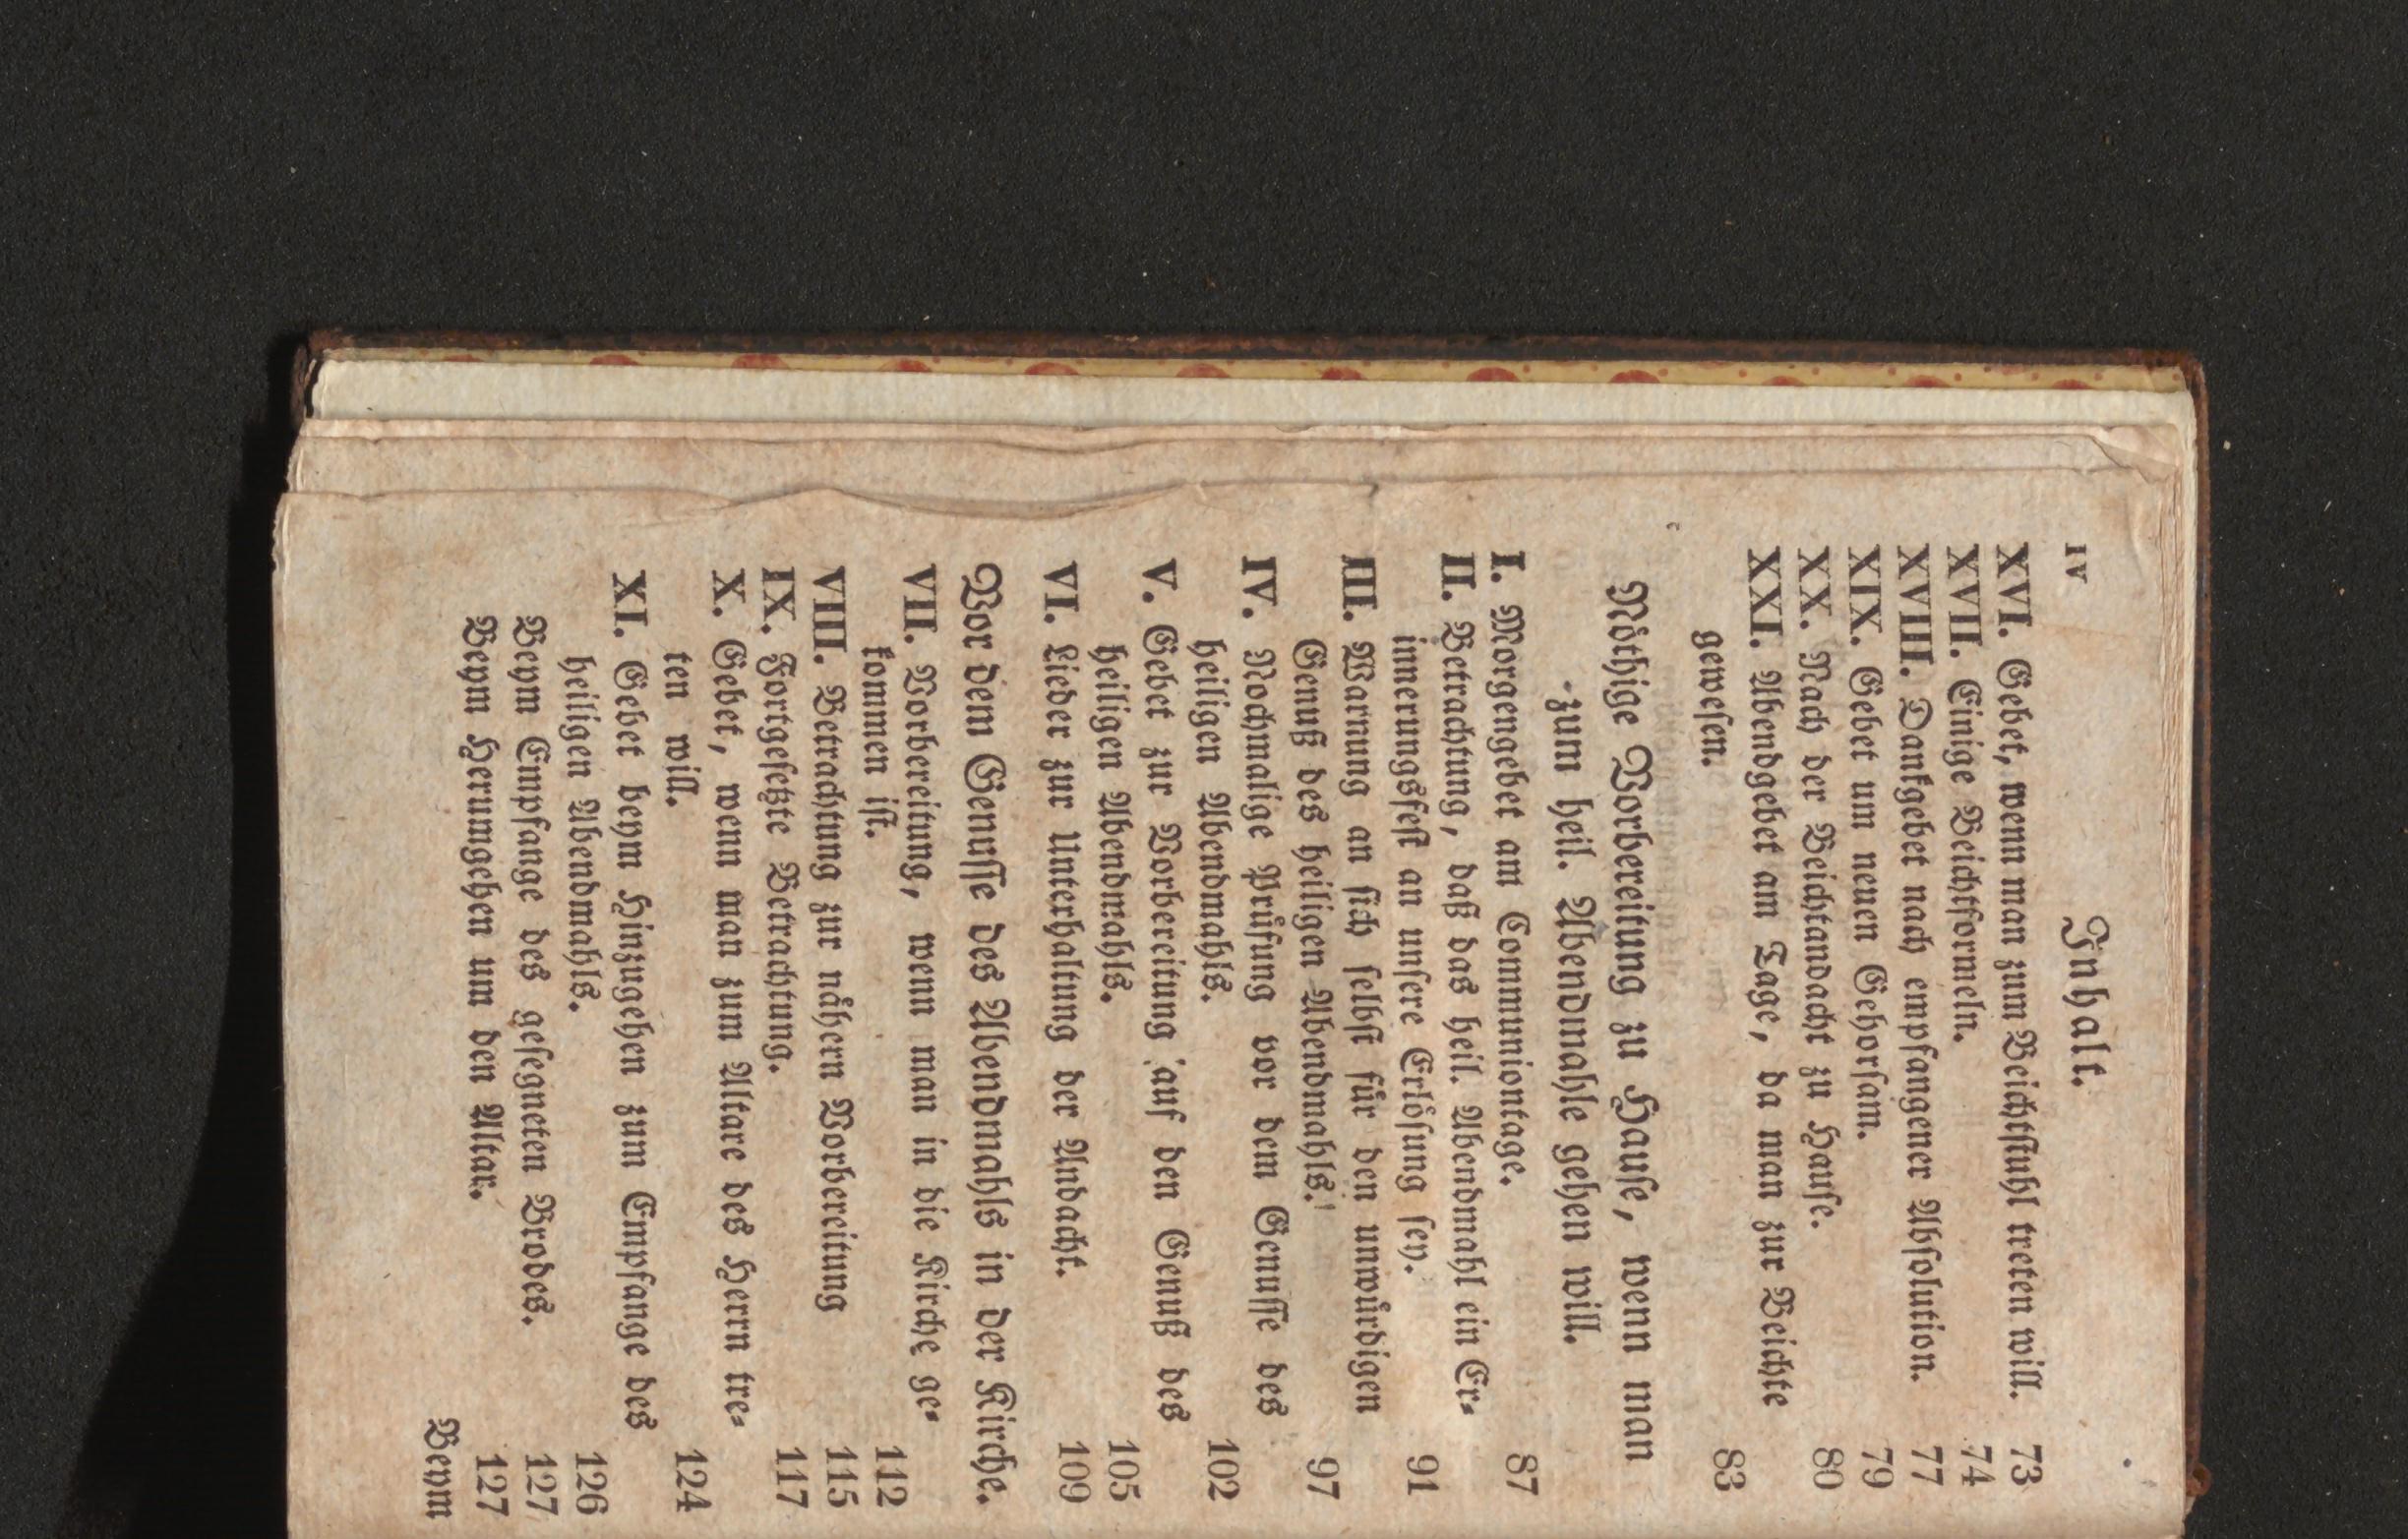 IV
Inhalt.
XVI. Gebet, wenn man zum Beichtstuhl treten will. 73
XVII. Einige Beichtformeln. 74
XVIII. Dankgebet nach empfangener Absolution. 77
XIX. Gebet um neuen Gehorsam. 79
XX. Nach der Beichtandacht zu Hause. 80
XXI. Abendgebet am Tage, da man zur Beichte
gewesen. 83
Nöthige Vorbereitung zu Hause, wenn man
zum heil. Abendmahle gehen will.
I. Morgengebet am Communiontage. 87
II. Betrachtung, daß das heil. Abendmahl ein Er-
innerungsfest an unsere Erlösung sey. 91
III. Warnung an sich selbst für den unwürdigen
Genuß des heiligen Abendmahls. 97
IV. Nochmalige Prüfung vor dem Genusse des
heiligen Abendmahls. 102
V. Gebet zur Vorbereitung auf den Genuß des
heiligen Abendmahls. 105
VI. Lieder zur Unterhaltung der Andacht. 109
Vor dem Genusse des Abendmahls in der Kirche.
VII. Vorbereitung, wenn man in die Kirche ge-
kommen ist. 112
VIII. Betrachtung zur nähern Vorbereitung 115
IX. Fortgesetzte Betrachtung. 117
X. Gebet, wenn man zum Altare des Herrn tre-
ten will. 124
XI. Gebet beym Hinzugehen zum Empfange des
heiligen Abendmahls. 126
Beym Empfange des gesegneten Brodes. 127
Beym Herumgehen um den Altar. 127
Beym